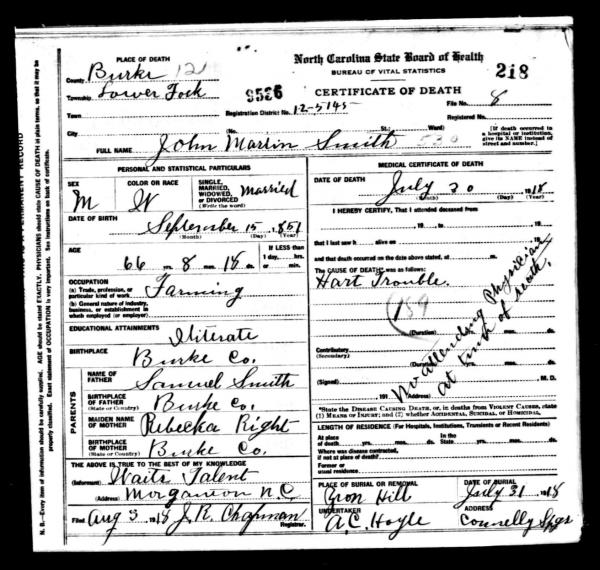 North Carolina State Board of Health
BUREAU OF VITAL STATISTICS
CERTIFICATE OF DEATH
218
9526
PLACE OF DEATH
County Burke 121
Township Lower Fork
Town
City
Registration District No. 12-5145
File No. 8
Registered No.
(No. St.; Ward)
[If death occurred in a hospital or institution, give its NAME instead of street and number.]
FULL NAME John Martin Smith
PERSONAL AND STATISTICAL PARTICULARS
SEX M
COLOR OR RACE W
SINGLE, MARRIED, WIDOWED, OR DIVORCED (Write the word) Married
DATE OF BIRTH September 15, 1851
(Month) (Day) (Year)
AGE 66 yrs. 8 mos. 18 ds.
If LESS than 1 day, hrs. or min.
OCCUPATION
(a) Trade, profession, or particular kind of work Farming
(b) General nature of industry, business, or establishment in which employed (or employer)
EDUCATIONAL ATTAINMENTS Iliterate
BIRTHPLACE Burke Co.
PARENTS
NAME OF FATHER Samuel Smith
BIRTHPLACE OF FATHER (State or Country) Burke Co.
MAIDEN NAME OF MOTHER Rebecka Right
BIRTHPLACE OF MOTHER (State or Country) Burke Co.
THE ABOVE IS TRUE TO THE BEST OF MY KNOWLEDGE
(Informant) Waits Talent
(Address) Morganton N.C.
Filed Aug 3 1918 J. R. Chapman
Registrar.
MEDICAL CERTIFICATE OF DEATH
DATE OF DEATH July 20 1918
(Month) (Day) (Year)
I HEREBY CERTIFY, That I attended deceased from
, 19 , to , 19 ,
that I last saw h alive on , 19 ,
and that death occurred on the date above stated, at m.
The CAUSE OF DEATH* was as follows:
Hart Trouble.
159
No attending physician
at time of death.
(Duration) yrs. mos. ds.
Contributory
(Secondary)
(Duration) yrs. mos. ds.
(Signed) M. D.
191 (Address)
*State the DISEASE CAUSING DEATH, or, in deaths from VIOLENT CAUSES, state
(1) MEANS OF INJURY; and (2) whether ACCIDENTAL, SUICIDAL, or HOMICIDAL.
LENGTH OF RESIDENCE (For Hospitals, Institutions, Transients or Recent Residents)
At place of death yrs. mos. ds. In the State yrs. mos. ds.
Where was disease contracted, if not at place of death?
Former or usual residence
PLACE OF BURIAL OR REMOVAL Zion Hill
DATE OF BURIAL July 21 1918
UNDERTAKER A.C. Hoyle
ADDRESS Connelly Spgs
N. B.—Every item of information should be carefully supplied. AGE should be stated EXACTLY. PHYSICIANS should state CAUSE OF DEATH in plain terms, so that it may be
properly classified. Exact statement of OCCUPATION is very important. See instructions on back of certificate.